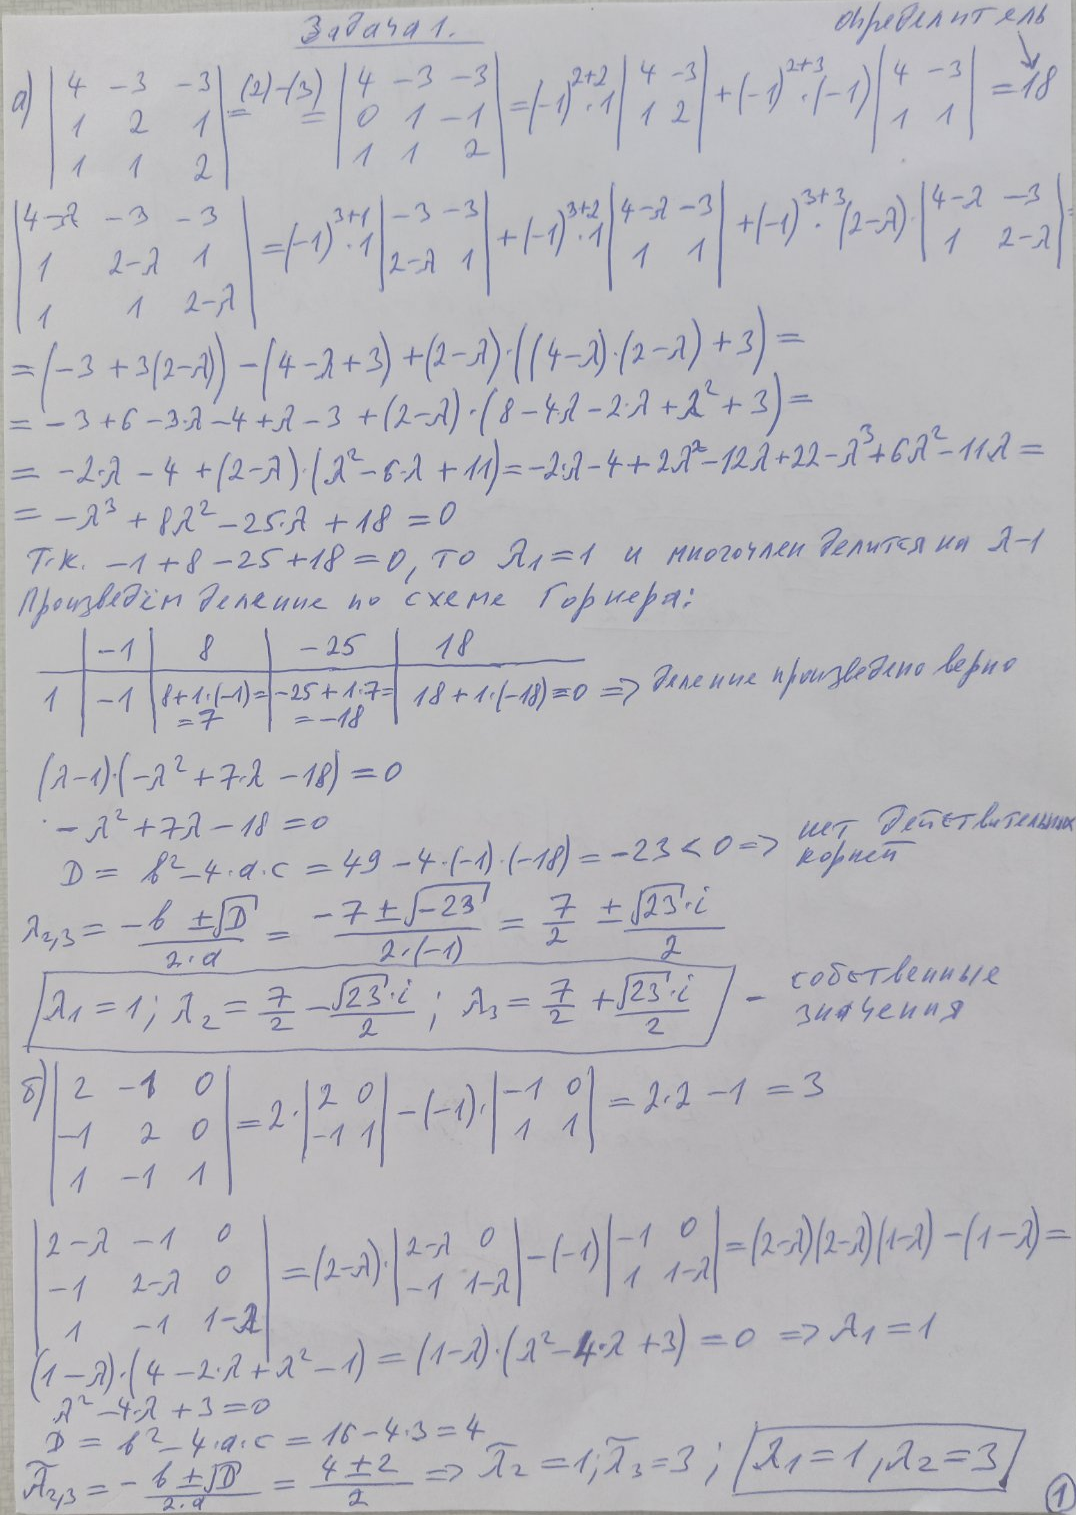 Задача 1.
определитель
а) | 4 -3 -3 ; 1 2 1 ; 1 1 2 | (2)-(3) = = | 4 -3 -3 ; 0 1 -1 ; 1 1 2 | = (-1)^{2+2}·1 | 4 -3 ; 1 2 | + (-1)^{2+3}·(-1) | 4 -3 ; 1 1 | = 18
| 4-λ -3 -3 ; 1 2-λ 1 ; 1 1 2-λ | = (-1)^{3+1}·1 | -3 -3 ; 2-λ 1 | + (-1)^{3+2}·1 | 4-λ -3 ; 1 1 | + (-1)^{3+3}·(2-λ)·| 4-λ -3 ; 1 2-λ | =
= (-3 + 3(2-λ)) - (4-λ+3) + (2-λ)·((4-λ)·(2-λ) + 3) =
= -3 + 6 - 3·λ - 4 + λ - 3 + (2-λ)·(8 - 4λ - 2·λ + λ² + 3) =
= -2·λ - 4 + (2-λ)·(λ² - 6·λ + 11) = -2·λ - 4 + 2λ² - 12λ + 22 - λ³ + 6λ² - 11λ =
= -λ³ + 8λ² - 25·λ + 18 = 0
Т.к. -1 + 8 - 25 + 18 = 0, то λ₁ = 1 и многочлен делится на λ-1
Произведём деление по схеме Горнера:
-1 | 8 | -25 | 18
1 | -1 | 8+1·(-1)= =7 | -25+1·7= =-18 | 18+1·(-18)=0 => деление произведено верно
(λ-1)·(-λ² + 7·λ - 18) = 0
-λ² + 7λ - 18 = 0
D = b² - 4·a·c = 49 - 4·(-1)·(-18) = -23 < 0 => нет действительных корней
λ₂,₃ = -b ±√D / 2·a = -7 ± √-23 / 2·(-1) = 7/2 ± √23·i / 2
λ₁ = 1; λ₂ = 7/2 - √23·i / 2 ; λ₃ = 7/2 + √23·i / 2 - собственные значения
б) | 2 -1 0 ; -1 2 0 ; 1 -1 1 | = 2·| 2 0 ; -1 1 | - (-1)·| -1 0 ; 1 1 | = 2·2 - 1 = 3
| 2-λ -1 0 ; -1 2-λ 0 ; 1 -1 1-λ | = (2-λ)·| 2-λ 0 ; -1 1-λ | - (-1) | -1 0 ; 1 1-λ | = (2-λ)(2-λ)(1-λ) - (1-λ) =
(1-λ)·(4 - 2·λ + λ² - 1) = (1-λ)·(λ² - 4·λ + 3) = 0 => λ₁ = 1
λ² - 4·λ + 3 = 0
D = b² - 4·a·c = 16 - 4·3 = 4
λ̃₂,₃ = - b ± √D / 2·a = 4 ± 2 / 2 => λ̃₂ = 1; λ̃₃ = 3 ; λ₁ = 1, λ₂ = 3
1